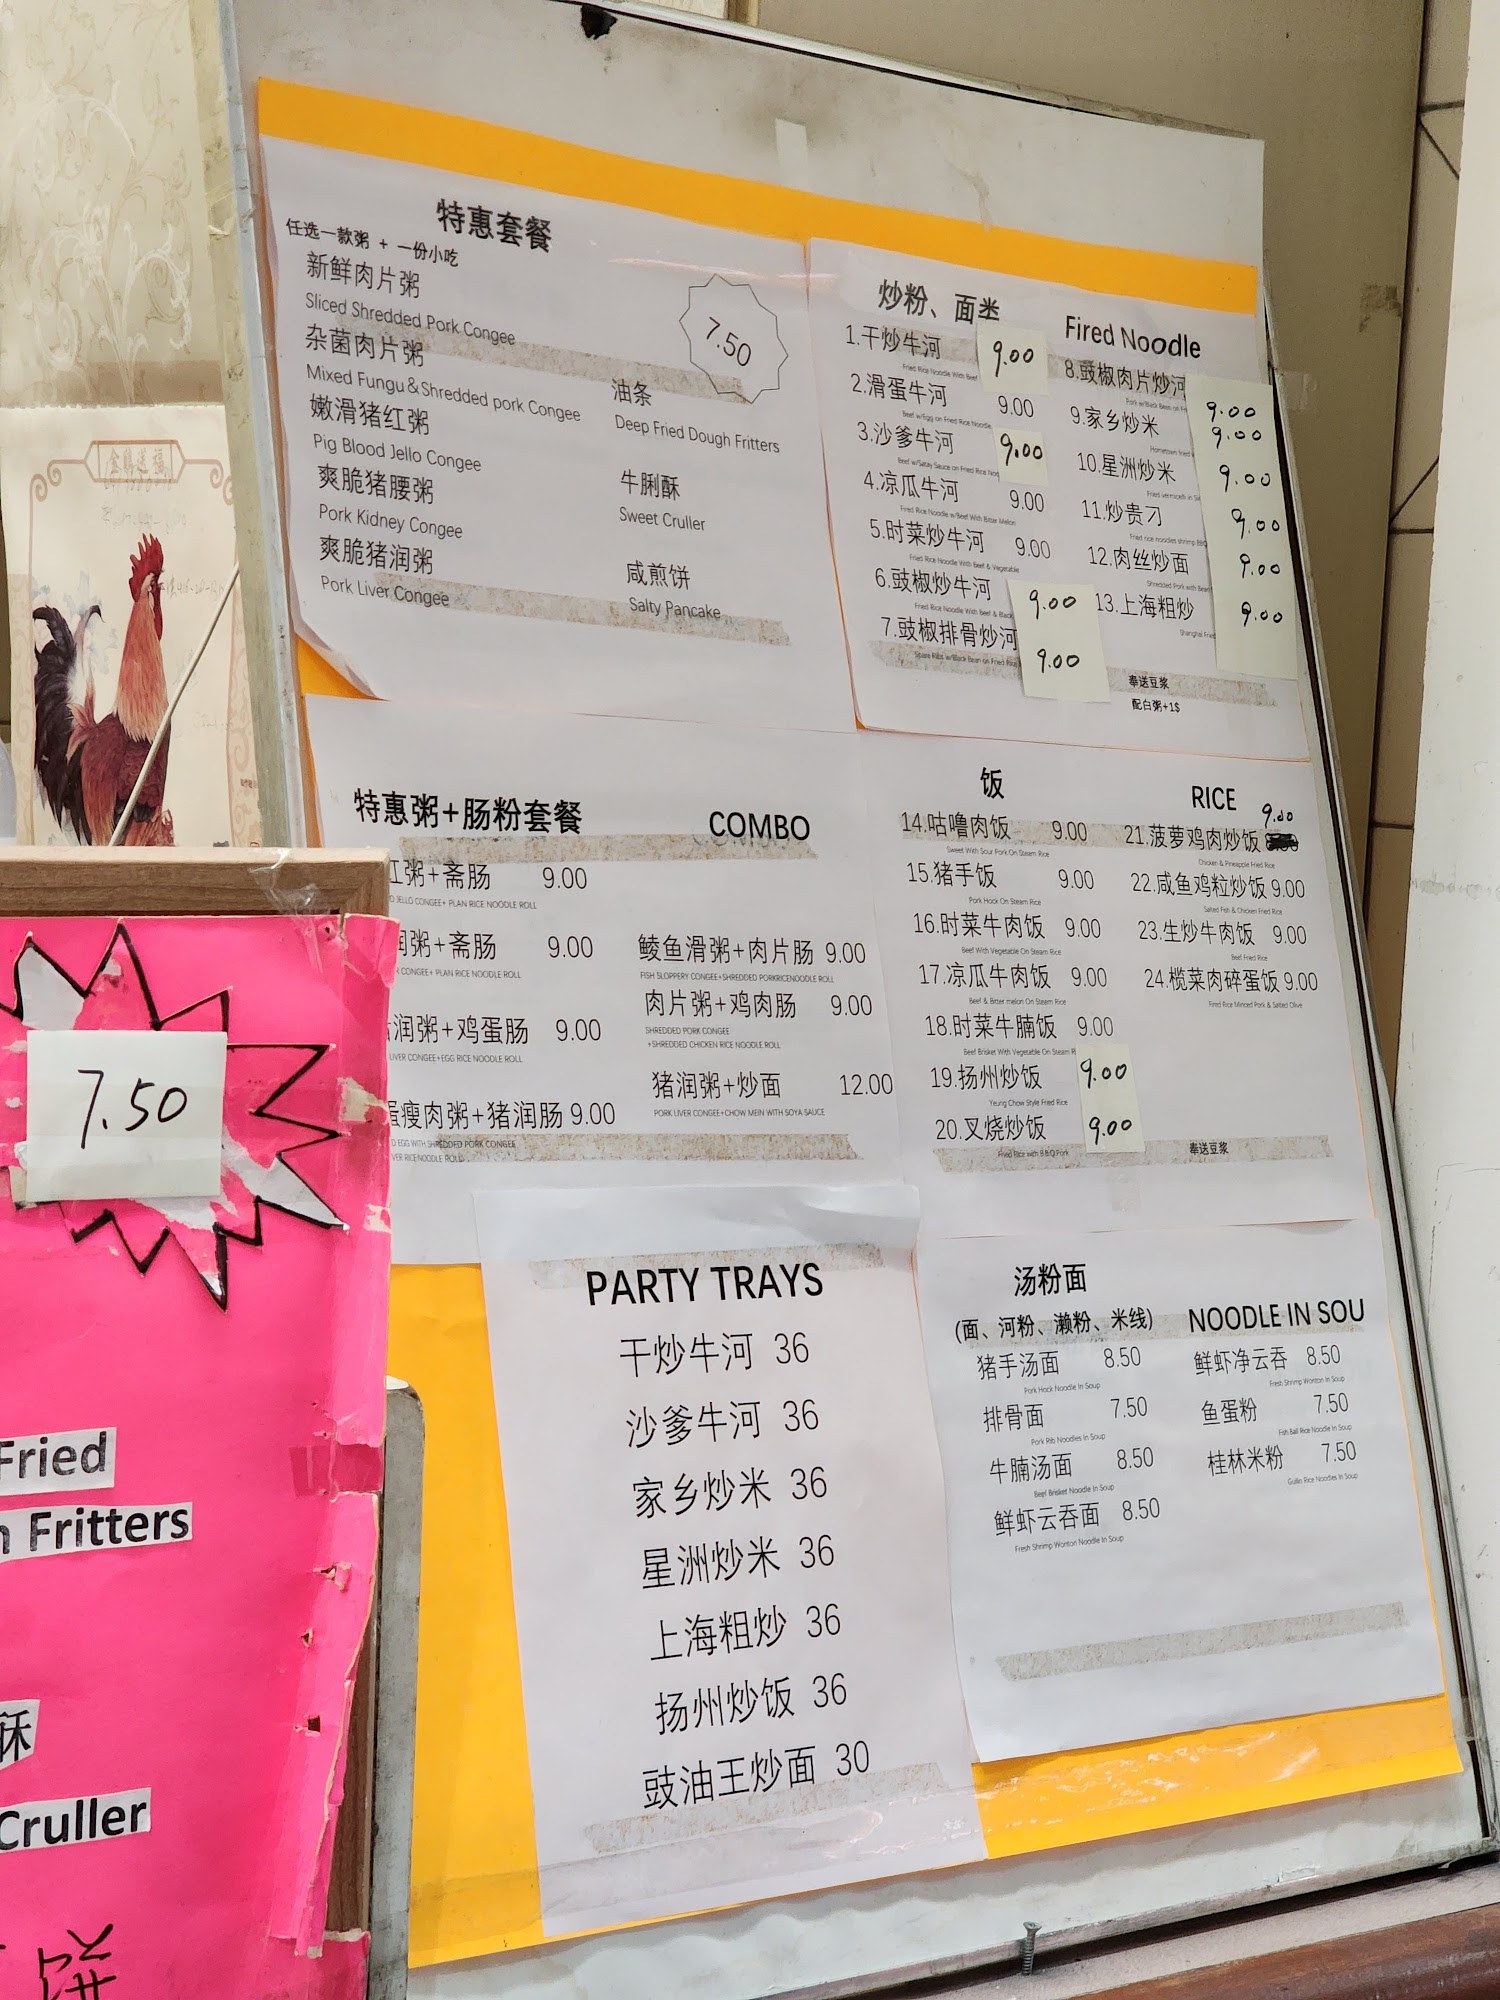 特惠套餐
任选一款粥 + 一份小吃
新鲜肉片粥
Sliced Shredded Pork Congee
杂菌肉片粥
Mixed Fungu&Shredded pork Congee
嫩滑猪红粥
Pig Blood Jello Congee
爽脆猪腰粥
Pork Kidney Congee
爽脆猪润粥
Pork Liver Congee
7.50
油条
Deep Fried Dough Fritters
牛脷酥
Sweet Cruller
咸煎饼
Salty Pancake
炒粉、面类 Fired Noodle
1.干炒牛河 9.00
Fried Rice Noodle With Beef
2.滑蛋牛河 9.00
Beef w/Egg on Fried Rice Noodle
3.沙爹牛河 9.00
Beef w/Satay Sauce on Fried Rice
4.凉瓜牛河 9.00
Fried Rice Noodle w/Beef With Bitter Melon
5.时菜炒牛河 9.00
Fried Rice Noodle With Beef & Vegetable
6.豉椒炒牛河 9.00
Fried Rice Noodle With Beef & Black
7.豉椒排骨炒河 9.00
Spare Ribs w/Black Bean on Fried Rice
8.豉椒肉片炒河 9.00
Pork w/Black Bean on
9.家乡炒米 9.00
Hometown fried
10.星洲炒米 9.00
Fried vermicelli in
11.炒贵刁 9.00
Fried rice noodles shrimp BBQ
12.肉丝炒面 9.00
Shredded Pork with Bean
13.上海粗炒 9.00
Shanghai Fried
奉送豆浆
配白粥+1$
特惠粥+肠粉套餐 COMBO
红粥+斋肠 9.00
JELLO CONGEE+ PLAN RICE NOODLE ROLL
润粥+斋肠 9.00
CONGEE+ PLAN RICE NOODLE ROLL
润粥+鸡蛋肠 9.00
LIVER CONGEE+EGG RICE NOODLE ROLL
蛋瘦肉粥+猪润肠 9.00
EGG WITH SHREDDED PORK CONGEE
RICE NOODLE ROLL
鲮鱼滑粥+肉片肠 9.00
FISH SLOPPERY CONGEE+SHREDDED PORKRICENOODLE ROLL
肉片粥+鸡肉肠 9.00
SHREDDED PORK CONGEE
+SHREDDED CHICKEN RICE NOODLE ROLL
猪润粥+炒面 12.00
PORK LIVER CONGEE+CHOW MEIN WITH SOYA SAUCE
饭 RICE
14.咕噜肉饭 9.00
Sweet With Sour Pork On Steam Rice
15.猪手饭 9.00
Pork Hock On Steam Rice
16.时菜牛肉饭 9.00
Beef With Vegetable On Steam Rice
17.凉瓜牛肉饭 9.00
Beef & Bitter melon On Steam Rice
18.时菜牛腩饭 9.00
Beef Brisket With Vegetable On Steam
19.扬州炒饭 9.00
Yeung Chow Style Fried Rice
20.叉烧炒饭 9.00
Fried Rice with B.B.Q Pork
21.菠萝鸡肉炒饭 9.00
Chicken & Pineapple Fried Rice
22.咸鱼鸡粒炒饭 9.00
Salted Fish & Chicken Fried Rice
23.生炒牛肉饭 9.00
Beef Fried Rice
24.榄菜肉碎蛋饭 9.00
Fired Rice Minced Pork & Salted Olive
奉送豆浆
PARTY TRAYS
干炒牛河 36
沙爹牛河 36
家乡炒米 36
星洲炒米 36
上海粗炒 36
扬州炒饭 36
豉油王炒面 30
汤粉面
(面、河粉、濑粉、米线) NOODLE IN SOU
猪手汤面 8.50
Pork Hock Noodle In Soup
排骨面 7.50
Pork Rib Noodles In Soup
牛腩汤面 8.50
Beef Brisket Noodle In Soup
鲜虾云吞面 8.50
Fresh Shrimp Wonton Noodle In Soup
鲜虾净云吞 8.50
Fresh Shrimp Wonton In Soup
鱼蛋粉 7.50
Fish Ball Rice Noodle In Soup
桂林米粉 7.50
Guilin Rice Noodles In Soup
金鸡送福
7.50
Fried
Fritters
酥
Cruller
饼